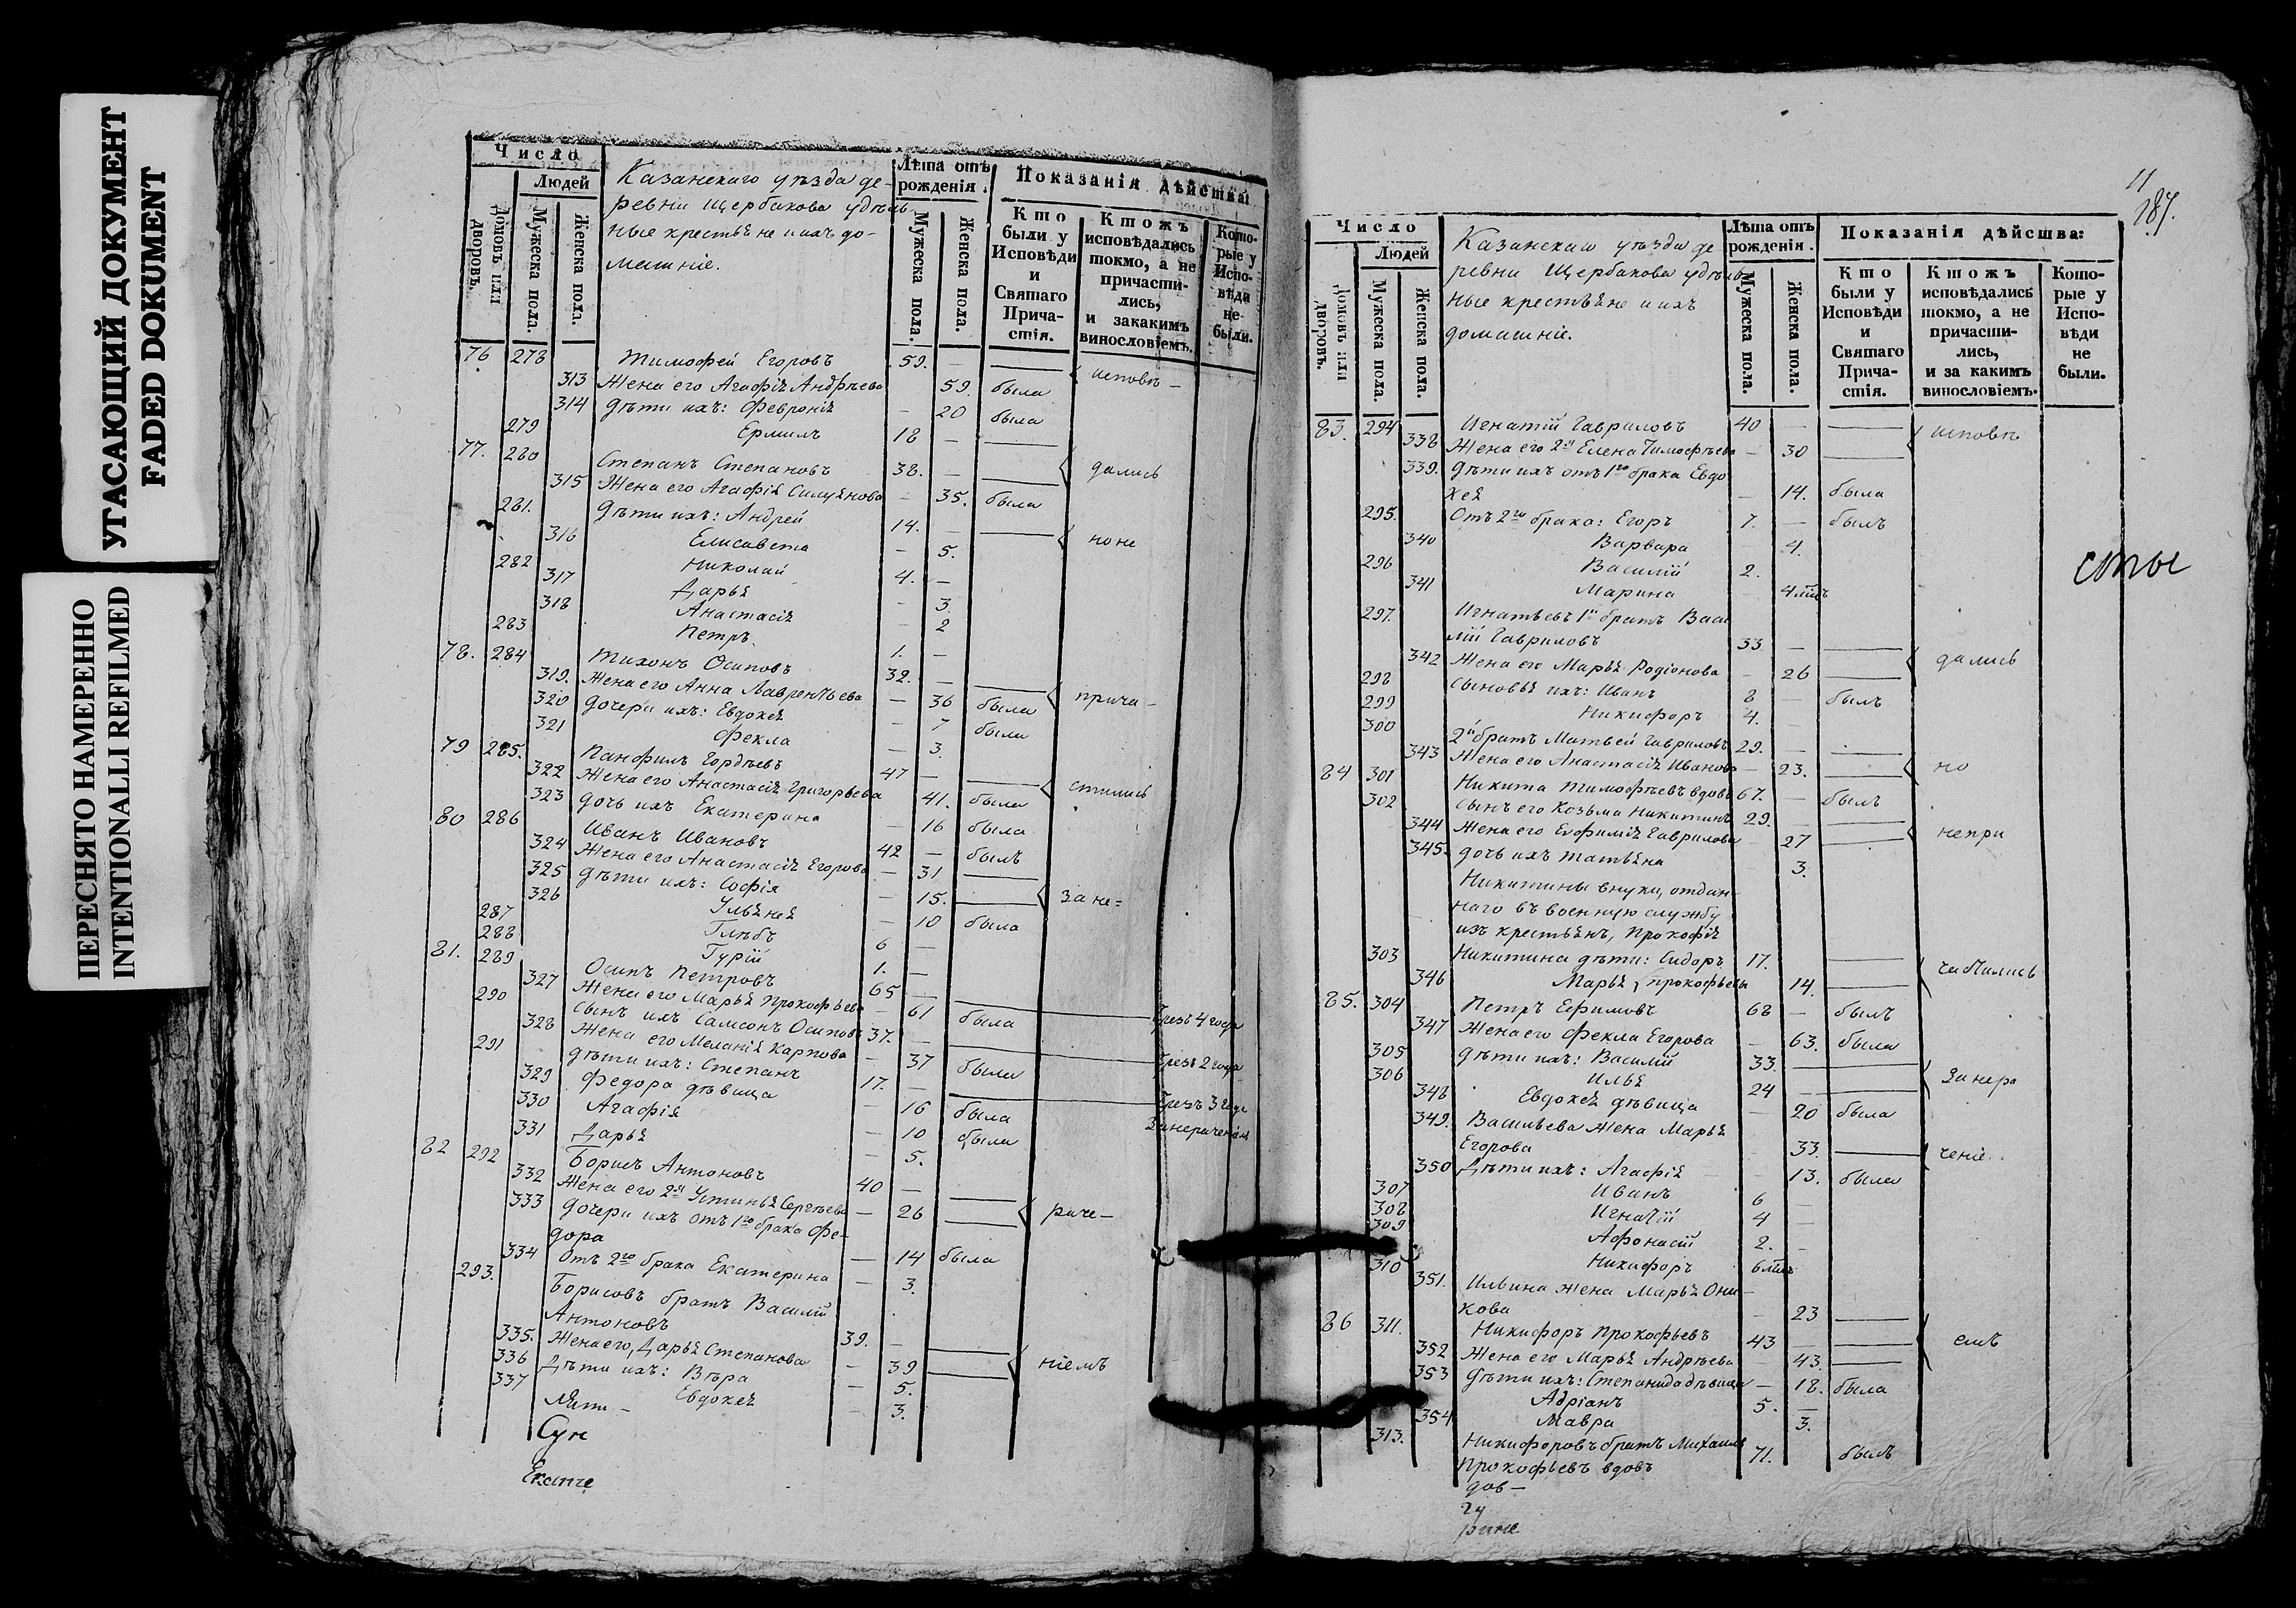 УТАСАЮЩИЙ ДОКУМЕНТ
FADED DOKUMENT
ПЕРЕСНЯТО НАМЕРЕННО
INTENTIONALLI REFILMED
Число
Людей
Домовъ или дворовъ.
Мужеска пола.
Женска пола.
Казанскаго уѣзда де-
ревни Щербакова удѣль
ные крестьяне и ихъ до-
машніе.
Лѣта отъ рожденія.
Мужеска пола.
Женска пола.
Показанія дѣйства:
Кто были у Исповѣди и Святаго Прича-стія.
Ктожъ исповѣдались токмо, а не причасти-лись, и закакимъ винословіемъ.
Кото-рые у Испо-вѣди не были.
76 278 Тимофей Егоровъ 59. — исповѣ-
313 Жена его Агафія Андрѣева 59. была
314 дѣти ихъ: Февронія — 20 была
279 Ермилъ 18 —
77. 280 Степанъ Степановъ 38. — дались
315 Жена его Агафія Силуянова — 35. была
281. Дѣти ихъ: Андрей 14. — но не
316 Елисавета — 5.
282 Николай 4. —
317 Дарья — 3.
318 Анастасія — 2
283 Петръ 1. —
78. 284 Тихонъ Осиповъ 32. — прича-
319. Жена его Анна Лаврентьева — 36 была
320 дочери ихъ: Евдокея — 7 была
321 Фекла — 3.
79 285. Панфилъ Гордѣевъ 47 — стились
322 Жена его Анастасія Григорьева 41. была
323 дочь ихъ Екатерина — 16 была
80 286 Иванъ Ивановъ 42 — былъ
324 Жена его Анастасія Егорова — 31
325 дѣти ихъ: Софія — 15. за не=
326 Ульянея — 10 была
287 Глѣбъ 6 —
288 Гурій 1. —
81. 289 Осипъ Петровъ 65 — Чрезъ 4 года
327 Жена его Марья Прокофьева — 61 была
290 Сынъ ихъ Самсонъ Осиповъ 37. — Чрезъ 2 года
328 Жена его Меланія Карпова — 37 была
291 дѣти ихъ: Степанъ 17. — Чрезъ 3 года
329 Федора дѣвица — 16 была
330 Агафія — 10 была
331 Дарья — 5.
82 292 Борисъ Антоновъ 40 — раче-
332 Жена его 2я Устинья Сергѣева — 26
333 дочери ихъ отъ 1го брака Фе-
дора — 14 была
334 отъ 2го брака Екатерина — 3.
293. Борисовъ братъ Василій
Антоновъ 39. — ніемъ
335. Жена его, Дарья Степанова — 39
336 Дѣти ихъ: Вѣра — 5.
337 Евдокея — 3.
11
187.
Число
Людей
Домовъ или дворовъ.
Мужеска пола.
Женска пола.
Казанскаго уѣзда де
ревни Щербакова удѣль
ные крестьяне и ихъ
домашніе.
Лѣта отъ рожденія.
Мужеска пола.
Женска пола.
Показанія дѣйства:
Кто были у Исповѣди и Святаго Прича-стія.
Ктожъ исповѣдались токмо, а не причасти-лись, и за какимъ винословіемъ.
Кото-рые у Испо-вѣди не были.
83. 294 Игнатій Гавриловъ 40 — исповѣ
338 Жена его 2я Елена Тимофѣева — 30
339. Дѣти ихъ отъ 1го брака Евдо
кея — 14. была
295. Отъ 2го брака: Егоръ 7. — былъ
340 Варвара — 4.
296 Василій 2. —
341 Марина —
297. Игнатьевъ 1й братъ Васи
лій Гавриловъ 33 — дались
342 Жена его Марья Родіонова — 26
298 Сыновья ихъ: Иванъ 8 — былъ
299 Никифоръ 4. —
300 2й братъ Матвей Гавриловъ 29. — но
343 Жена его Анастасія Иванова — 23.
84 301 Никита Тимофѣевъ вдовъ 67. — былъ
302 Сынъ его Козьма Никитинъ 29. — непри
344 Жена его Евфимія Гаврилова 27
345. дочь ихъ Татьяна 3.
Никитины внуки, отдан-
наго въ военную службу
изъ крестьянъ, Прокофія
303 Никитина дѣти: Сидоръ 17. частились
346 Марья Прокофьевы 14.
85. 304 Петръ Ефимовъ 68 — былъ
347 Жена его Фекла Егорова — 63. была
305 Дѣти ихъ: Василій 33. За нера
306 Илья 24
348 Евдокея дѣвица — 20 была
349. Васильева Жена Марья
Егорова — 33. ченіе.
350 Дѣти ихъ: Агафія — 13. была
307 Иванъ 6 —
308 Игнатій 4 —
309 Афонасій 2. —
310 Никифоръ
351. Ильина Жена Марья Они-
кова — 23
86 311. Никифоръ Прокофьевъ 43 — емъ
352 Жена его Марья Андрѣева 43.
353 Дѣти ихъ: Степанида дѣвица — 18. была
Адріанъ 5. —
354 Мавра 3.
313. Никифоровъ братъ Михаилъ
Прокофьевъ вдовъ 71. былъ
сты